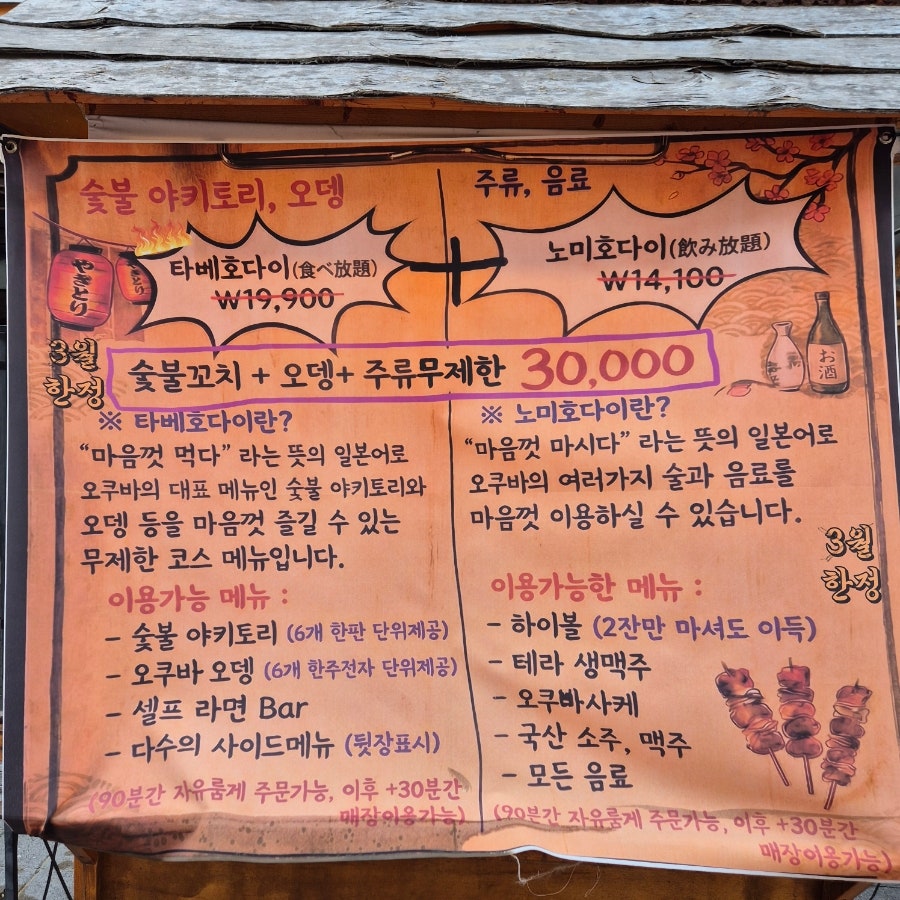 숯불 야키토리, 오뎅
주류, 음료
やきとり
타베호다이(食べ放題)
₩19,900
+
노미호다이(飲み放題)
₩14,100
お酒
3월
한정
숯불꼬치 + 오뎅+ 주류무제한 30,000
※ 타베호다이란?
"마음껏 먹다" 라는 뜻의 일본어로
오쿠바의 대표 메뉴인 숯불 야키토리와
오뎅 등을 마음껏 즐길 수 있는
무제한 코스 메뉴입니다.
이용가능 메뉴 :
- 숯불 야키토리 (6개 한판 단위제공)
- 오쿠바 오뎅 (6개 한주전자 단위제공)
- 셀프 라면 Bar
- 다수의 사이드메뉴 (뒷장표시)
(90분간 자유롭게 주문가능, 이후 +30분간
매장이용가능)
※ 노미호다이란?
"마음껏 마시다" 라는 뜻의 일본어로
오쿠바의 여러가지 술과 음료를
마음껏 이용하실 수 있습니다.
3월
한정
이용가능한 메뉴 :
- 하이볼 (2잔만 마셔도 이득)
- 테라 생맥주
- 오쿠바사케
- 국산 소주, 맥주
- 모든 음료
(90분간 자유롭게 주문가능, 이후 +30분간
매장이용가능)